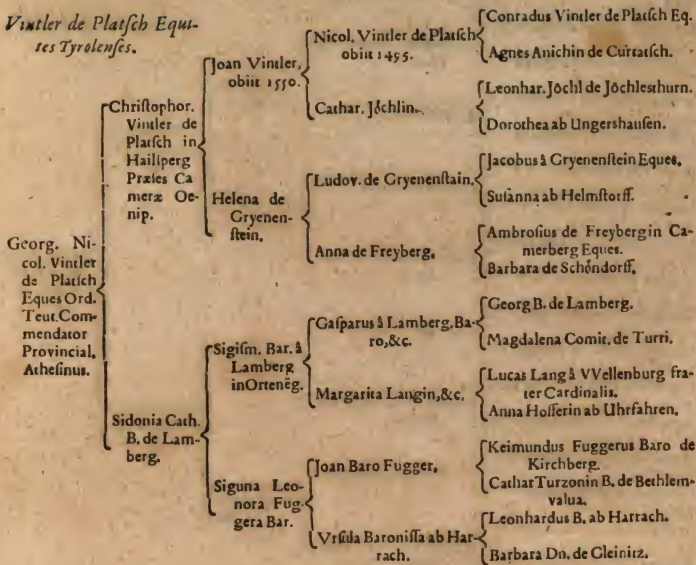 Vintler de Platſch Equi-
tes Tyrolenſes.
Georg. Ni-
col. Vintler
de Platſch
Eques Ord.
Teut. Com-
mendator
Provincial.
Atheſinus.
Chriſtophor.
Vintler de
Platſch in
Hailſperg
Præſes Ca
meræ Oe-
nip.
Sidonia Cath.
B. de Lam-
berg.
Joan Vintler,
obiit 1550.
Helena de
Gryenen-
ſtein.
Sigiſm. Bar. â
Lamberg
in Ortenëg.
Siguna Leo-
nora Fug-
gera Bar.
Nicol. Vintler de Platſch
obiit 1495.
Cathar. Jöchlin.
Ludov. de Gryenenſtain.
Anna de Freyberg.
Gaſparus â Lamberg. Ba-
ro, &c.
Margarita Langin, &c.
Joan Baro Fugger.
Vrſula Baroniſſa ab Har-
rach.
Conradus Vintler de Platſch Eq.
Agnes Anichin de Curtatſch.
Leonhar. Jöchl de Jöchlesthurn.
Dorothea ab Ungershauſen.
Jacobus â Gryenenſtein Eques.
Suſanna ab Helmſtorff.
Ambroſius de Freyberg in Ca-
merberg Eques.
Barbara de Schóndorff.
Georg B. de Lamberg.
Magdalena Comit. de Turri.
Lucas Lang â VVellenburg fra-
ter Cardinalis.
Anna Hofferin ab Uhrfahren.
Keimundus Fuggerus Baro de
Kirchberg.
Cathar Turzonin B. de Bethlem-
valua.
Leonhardus B. ab Harrach.
Barbara Dn. de Gleinitz.